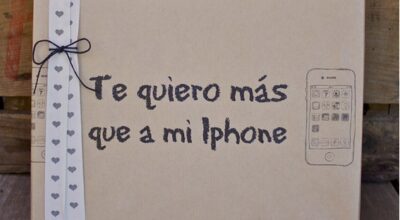 Te quiero más
que a mi Iphone